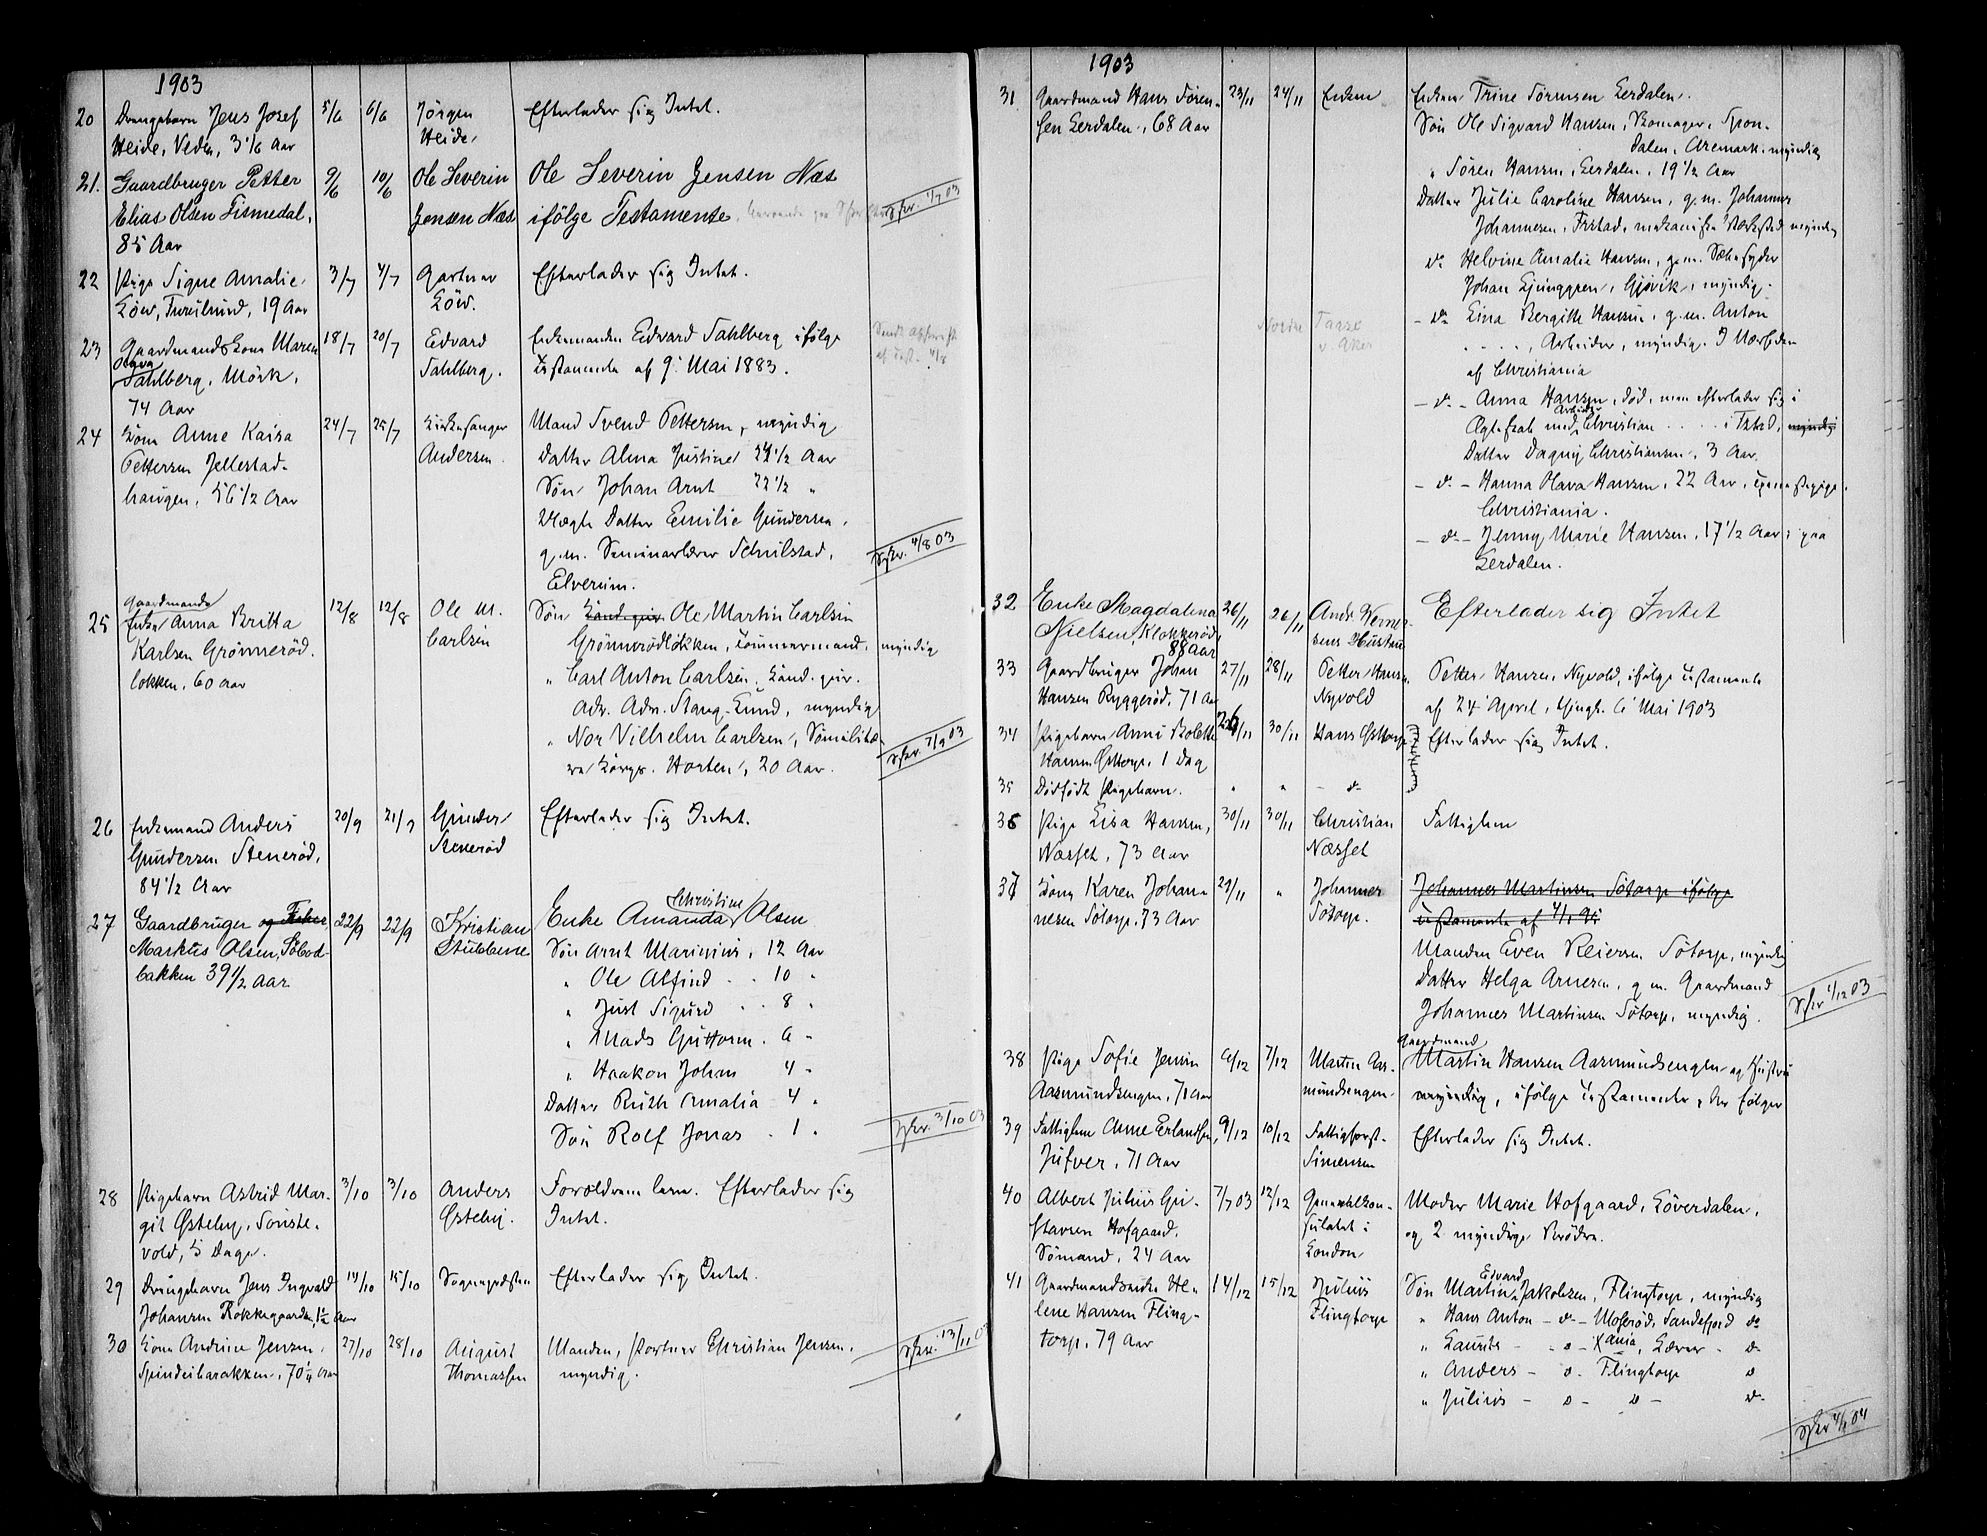 1903
20 Drengebarn Jens Josef 5/6 6/6 Jörgen Efterlader sig Intet.
Heide, Veden, 3 1/6 Aar Heide,
21. Gaardbruger Petter 9/6 10/6 Ole Severin Ole Severin Jensen Næs
Elias Olsen Tismedal, Jensen Næs ifölge Testamente, Skfr. 1/7 03
85 Aar
22 Pige Signe Amalie 3/7 4/7 Gartner Efterlader sig Intet.
Löw, 19 Aar Löw.
23 Gaardmandskone Maren 18/7 20/7 Edvard Enkemanden Edvard Dahlberg ifölge
Olava
Dahlberg, Mörk, Dahlberg. Testamente af 9. Mai 1883.
74 Aar
24 Kone Anne Kaisa 24/7 25/7 Kirkesanger Mand Svend Pettersen, myndig
Pettersen Jellestad- Andersen. Datter Alma Justine 24 1/2 Aar
haugen, 56 1/2 Aar Sön Johan Arnt 22 1/2 "
Datter Emilie Gundersen,
g. m. Seminarlærer Schulstad, Skfr. 4/8 03
Elverum.
25 Gaardmands
Enke Anna Britta 12/8 12/8 Ole M. Sön Ole Martin Carlsen
Karlsen Grönneröd- Carlsen Grönnerödlökken, Tömmermand, myndig
lökken, 60 Aar " Carl Anton Carlsen, Kand. jur.
Adv. Stang-Lund, myndig
" Nor Vilhelm Carlsen, Horten, 20 Aar. Skfr. 7/9 03
26 Enkemand Anders 20/9 21/9 Gunder Efterlader sig Intet.
Gundersen Steneröd, Steneröd
84 1/2 Aar
27 Gaardbruger og Fisker 22/9 22/9 Kristian Enke Amanda Christine Olsen
Markus Olsen, Sibod- Stubberne Sön Arnt Marinius, 12 Aar
bakken 39 1/2 Aar. " Ole Alfind . . 10 "
" Just Sigurd . . 8 "
" Mads Guttorm . 6 "
" Haakon Johan 4 "
Datter Ruth Amalia 4 "
Sön Rolf Jonas . 1 " Skfr. 3/10 03
28 Pigebarn Astrid Mar- 3/10 3/10 Anders Forældrene leve. Efterlader sig
git Östeby, Östeby. Intet.
vold, 5 Dage.
29 Drengebarn Jens Ingvald 14/10 15/10 Sognepresten Efterlader sig Intet.
Johansen Rokkegaarden, 1 1/2 Aar
30 Kone Andrine Jensen, 27/10 28/10 August Manden, Portner Christian Jensen, Skfr. 13/11 03
Spinderibarakken, 70 1/4 Aar Thomassen myndig.
1903
31. Gaardmand Hans Sören- 23/11 24/11 Enken Enken Trine Sörensen Lerdalen.
sen Lerdalen, 68 Aar Sön Ole Sigvard Hansen, Skomager, Spon-
dalen, Aremark, myndig
" Sören Hansen, Lerdalen, 19 1/2 Aar
Datter Julie Caroline Hansen, g. m. Johannes
Johannesen, Frstad, mekaniske Værksted myndig
do Helvine Amalie Hansen, g. m.
Johan Ljunggren, Gjövik, myndig.
- do Lina Bergitte Hansen, g. m. Anton
. . . . , Arbeider, myndig. I Nærheden
af Christiania
- do - Anna Hansen, död, men efterlader sig i
Arbeider
Ægteskab med Christian . . . . i Frstad, myndig
Datter Dagny Christiansen, 3 Aar.
- do - Hanna Olava Hansen, 22 Aar, Tjenestepige,
Christiania.
- do - Jenny Marie Hansen, 17 1/2 Aar, paa
Lerdalen.
32 Enke Magdalena 26/11 26/11 Andr. Werner- Efterlader sig Intet
Nielsen, Klokkeröd, sens Hustru
88 Aar
33 Gaardbruger Johan 27/11 28/11 Petter Hansen Petter Hansen Nyvold, ifölge Testamente
Hansen Ryggeröd, 71 Aar Nyvold af 24 April, tinglt. 6 Mai 1903
34 Pigebarn Anne Bolette 26/11 30/11 Hans Östtorp Efterlader sig Intet.
Hansen Östtorp, 1 Dag
35 Dödfödt Pigebarn. " " - do -
36 Pige Lisa Hansen, 30/11 30/11 Christian Fattiglem
Næsset, 73 Aar Næsset
37 Kone Karen Johan- 29/11 " Johannes Johannes Martinsen Sötorp ifölge
nesen Sötorp, 73 Aar Sötorp. Testamente af
Manden Even Reiersen Sötorp, myndig
Datter Helga Arnesen, g. m. Gaardmand
Johannes Martinsen Sötorp, myndig. Skfr 1/12 03
Gaardmand
38 Pige Sofie Jensen 6/12 7/12 Martin Aas- Martin Hansen Aasmundsengen og Hustru
Aasmundsengen, 71 Aar mundsengen myndig, ifölge Testamente, der fölger
39 Fattiglem Anne Erlandsen, 9/12 10/12 Fattigforst. Efterlader sig Intet.
Jufver, 71 Aar Simensen
40 Albert Julius Gu- 7/7 03 12/12 Generalkon- Moder Marie Hofgaard, Löverdalen,
stavsen Hofgaard, sulatet i og 2 myndige Brödre.
Sömand, 24 Aar London
41 Gaardmandsenke He- 14/12 15/12 Julius Sön Martin Edvard Jakobsen, Flingtorp, myndig
lene Hansen Fling- Flingtorp " Hans Anton - do - Moseröd, Sandefjord do
torp, 79 Aar " Laurits - o - Lærer - do
" Anders - o - Flingtorp o
" Julius - o - o - do -
Skfr 4/1 04